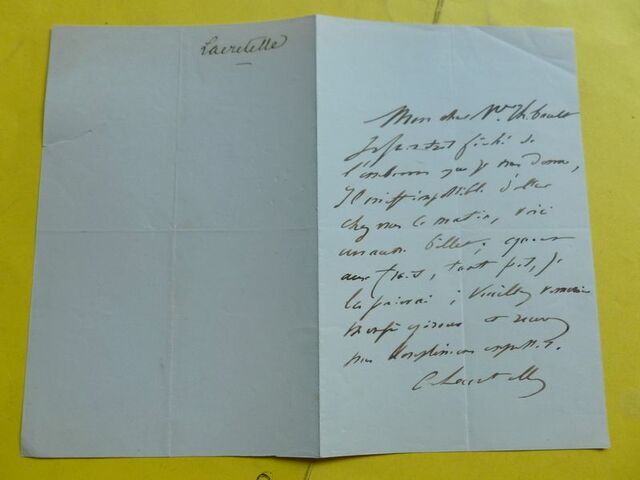 Lacretelle
Mon cher Mr Thibault
Je suis très fâché de
l'embarras que je vous donne,
Il m'est impossible d'aller
chez vous ce matin, voici
un autre billet; quant
aux frais, tant pis, je
les paierai; Veuillez
et recevoir
mes compliments empressés.
Lacretelle